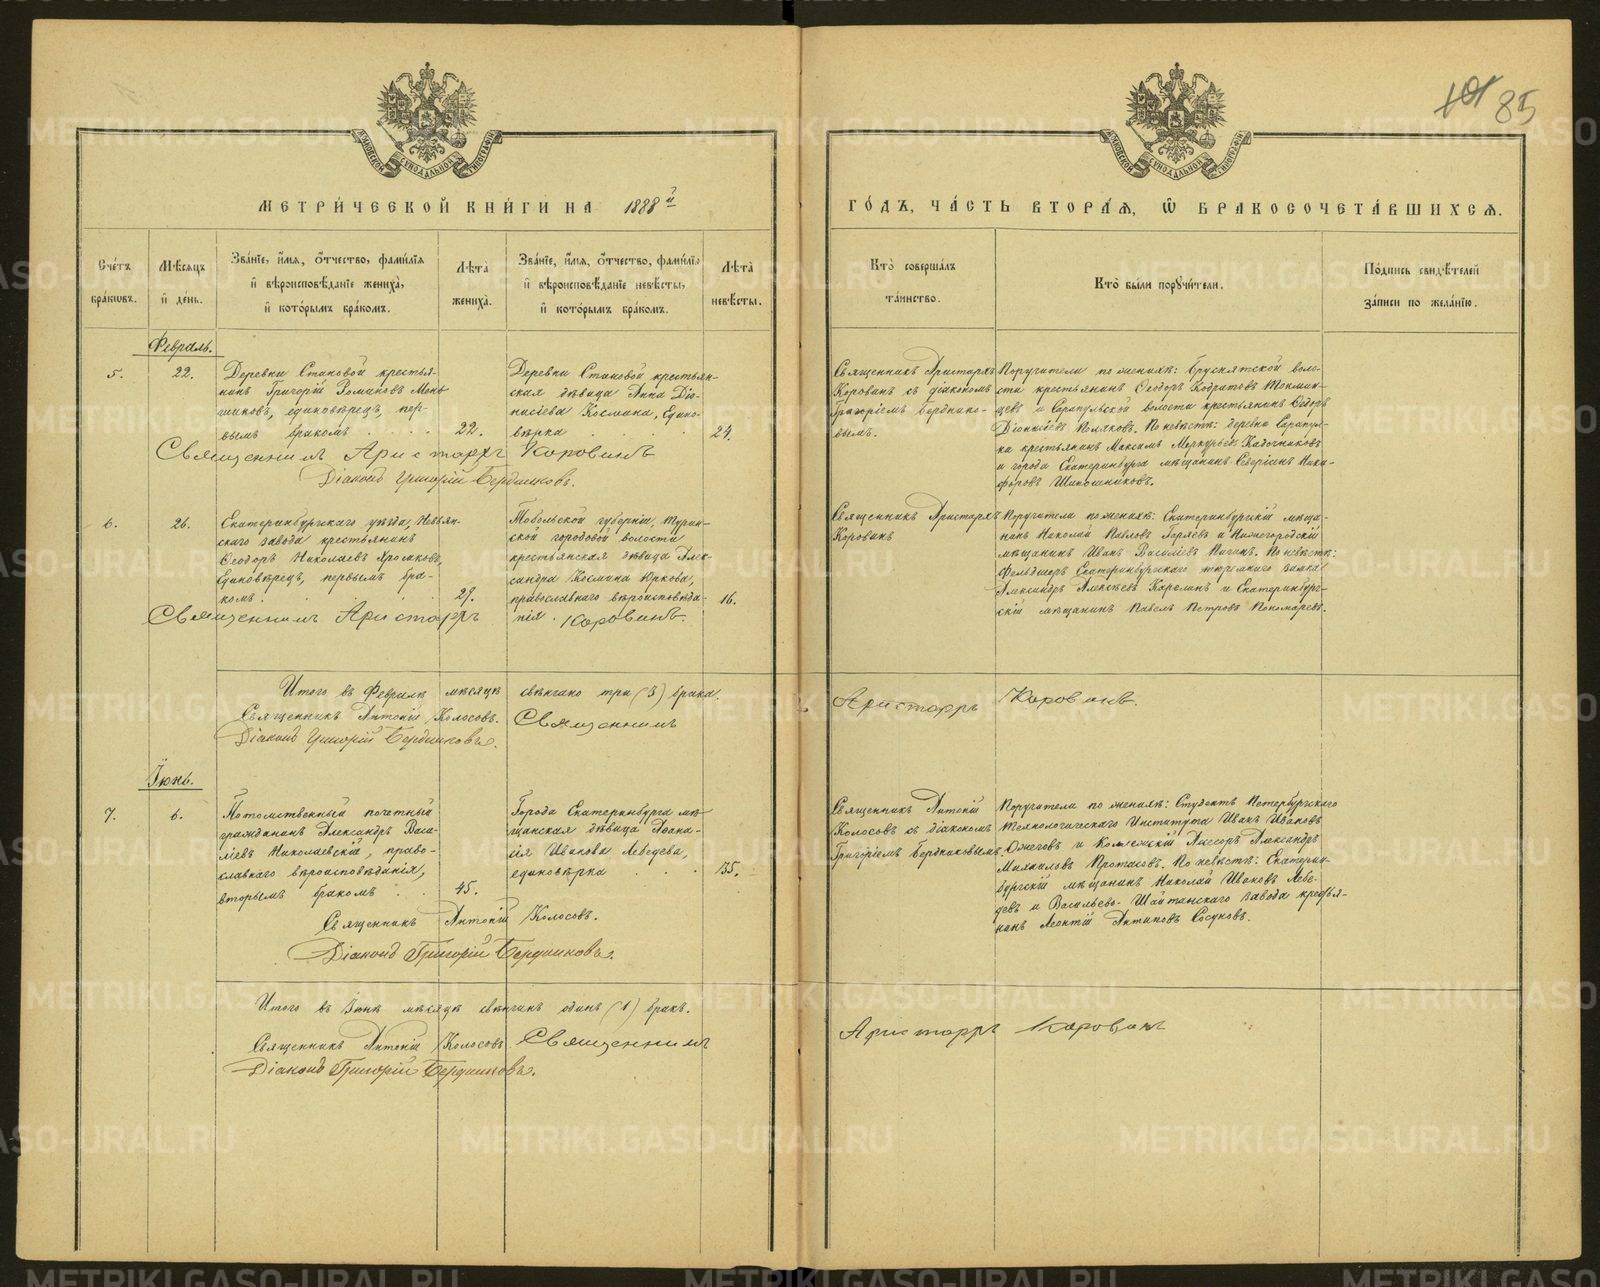 101 85
МЕТРИЧЕСКОЙ КНИГИ НА 1888й
ГОДЪ, ЧАСТЬ ВТОРАЯ, Ѿ БРАКОСОЧЕТАВШИХСЯ.
Счетъ браковъ.
Мѣсяцъ и день.
Званіе, имя, отчество, фамилія
и вѣроисповѣданіе жениха,
и которымъ бракомъ.
Лѣта
жениха.
Званіе, имя, отчество, фамилія
и вѣроисповѣданіе невѣсты,
и которымъ бракомъ.
Лѣта
невѣсты.
Кто совершалъ
таинство.
Кто были поручители.
Подпись свидѣтелей
записи по желанію.
Февраль.
5.
22.
Деревни Становой крестья-
нинъ Григорій Романовъ Мень
шиковъ, единовѣрецъ, пер-
вымъ бракомъ
22.
Деревни Становой крестьян-
ская дѣвица Анна Діо-
нисіева Космина, едино-
вѣрка
24.
Священникъ Аристархъ
Коровинъ съ діакономъ
Григоріемъ Берднико-
вымъ.
Поручители по женихѣ: Бруснятской воло-
сти крестьянинъ Ѳеодоръ Кодратовъ
и Сарапульской волости крестьянинъ Ѳедоръ
Діонисіевъ Поляковъ. По невѣстѣ: деревни Сарапул-
ки крестьянинъ Максимъ Меркурьевъ Кадочниковъ
и города Екатеринбурга мѣщанинъ Северіанъ Ники-
форовъ Шапошниковъ.
Священникъ Аристархъ Коровинъ
Діаконъ Григорій Бердниковъ.
6.
26.
Екатеринбургскаго уѣзда, Невьян-
скаго завода крестьянинъ
Ѳеодоръ Николаевъ Хромковъ,
единовѣрецъ, первымъ бра-
комъ
29.
Тобольской губерніи, Турин-
ской городовой волости
крестьянская дѣвица Алек-
сандра Космина Юркова,
православнаго вѣроисповѣда-
нія.
16.
Священникъ Аристархъ
Коровинъ
Поручители по женихѣ: Екатеринбургскій мѣща-
нинъ Николай Павловъ Горяевъ и Нижегородскій
мѣщанинъ Иванъ Василіевъ Пигинъ. По невѣстѣ:
Фельдшеръ Екатеринбургскаго тюремнаго замка
Александръ Алексѣевъ Карелинъ и Екатеринбург-
скій мѣщанинъ Павелъ Петровъ Пономаревъ.
Священникъ Аристархъ Коровинъ.
Итого въ Февралѣ мѣсяцѣ свѣнчано три (3) брака.
Священникъ Антоній Колосовъ.
Священникъ Аристархъ Коровинъ.
Діаконъ Григорій Бердниковъ.
Іюнь.
7.
6.
Потомственный почетный
гражданинъ Александръ Васи-
ліевъ Николаевскій, право-
славнаго вѣроисповѣданія,
вторымъ бракомъ
45.
Города Екатеринбурга мѣ-
щанская дѣвица Аѳана-
сія Иванова Лебедева,
единовѣрка
35.
Священникъ Антоній
Колосовъ съ діакономъ
Григоріемъ Бердниковымъ.
Поручители по женихѣ: Студентъ Петербургскаго
Технологическаго Института Иванъ Ивановъ
Ожеговъ и Коллежскій Ассесоръ Александръ
Михаиловъ Протасовъ. По невѣстѣ: Екатерин-
бургскій мѣщанинъ Николай Ивановъ Лебе-
девъ и Васильево-Шайтанскаго завода крестья-
нинъ Леонтій Антиповъ Сосуновъ.
Священникъ Антоній Колосовъ.
Діаконъ Григорій Бердниковъ.
Итого въ Іюнѣ мѣсяцѣ свѣнчанъ одинъ (1) бракъ.
Священникъ Антоній Колосовъ
Священникъ Аристархъ Коровинъ
Діаконъ Григорій Бердниковъ.
METRIKI.GASO-URAL.RU